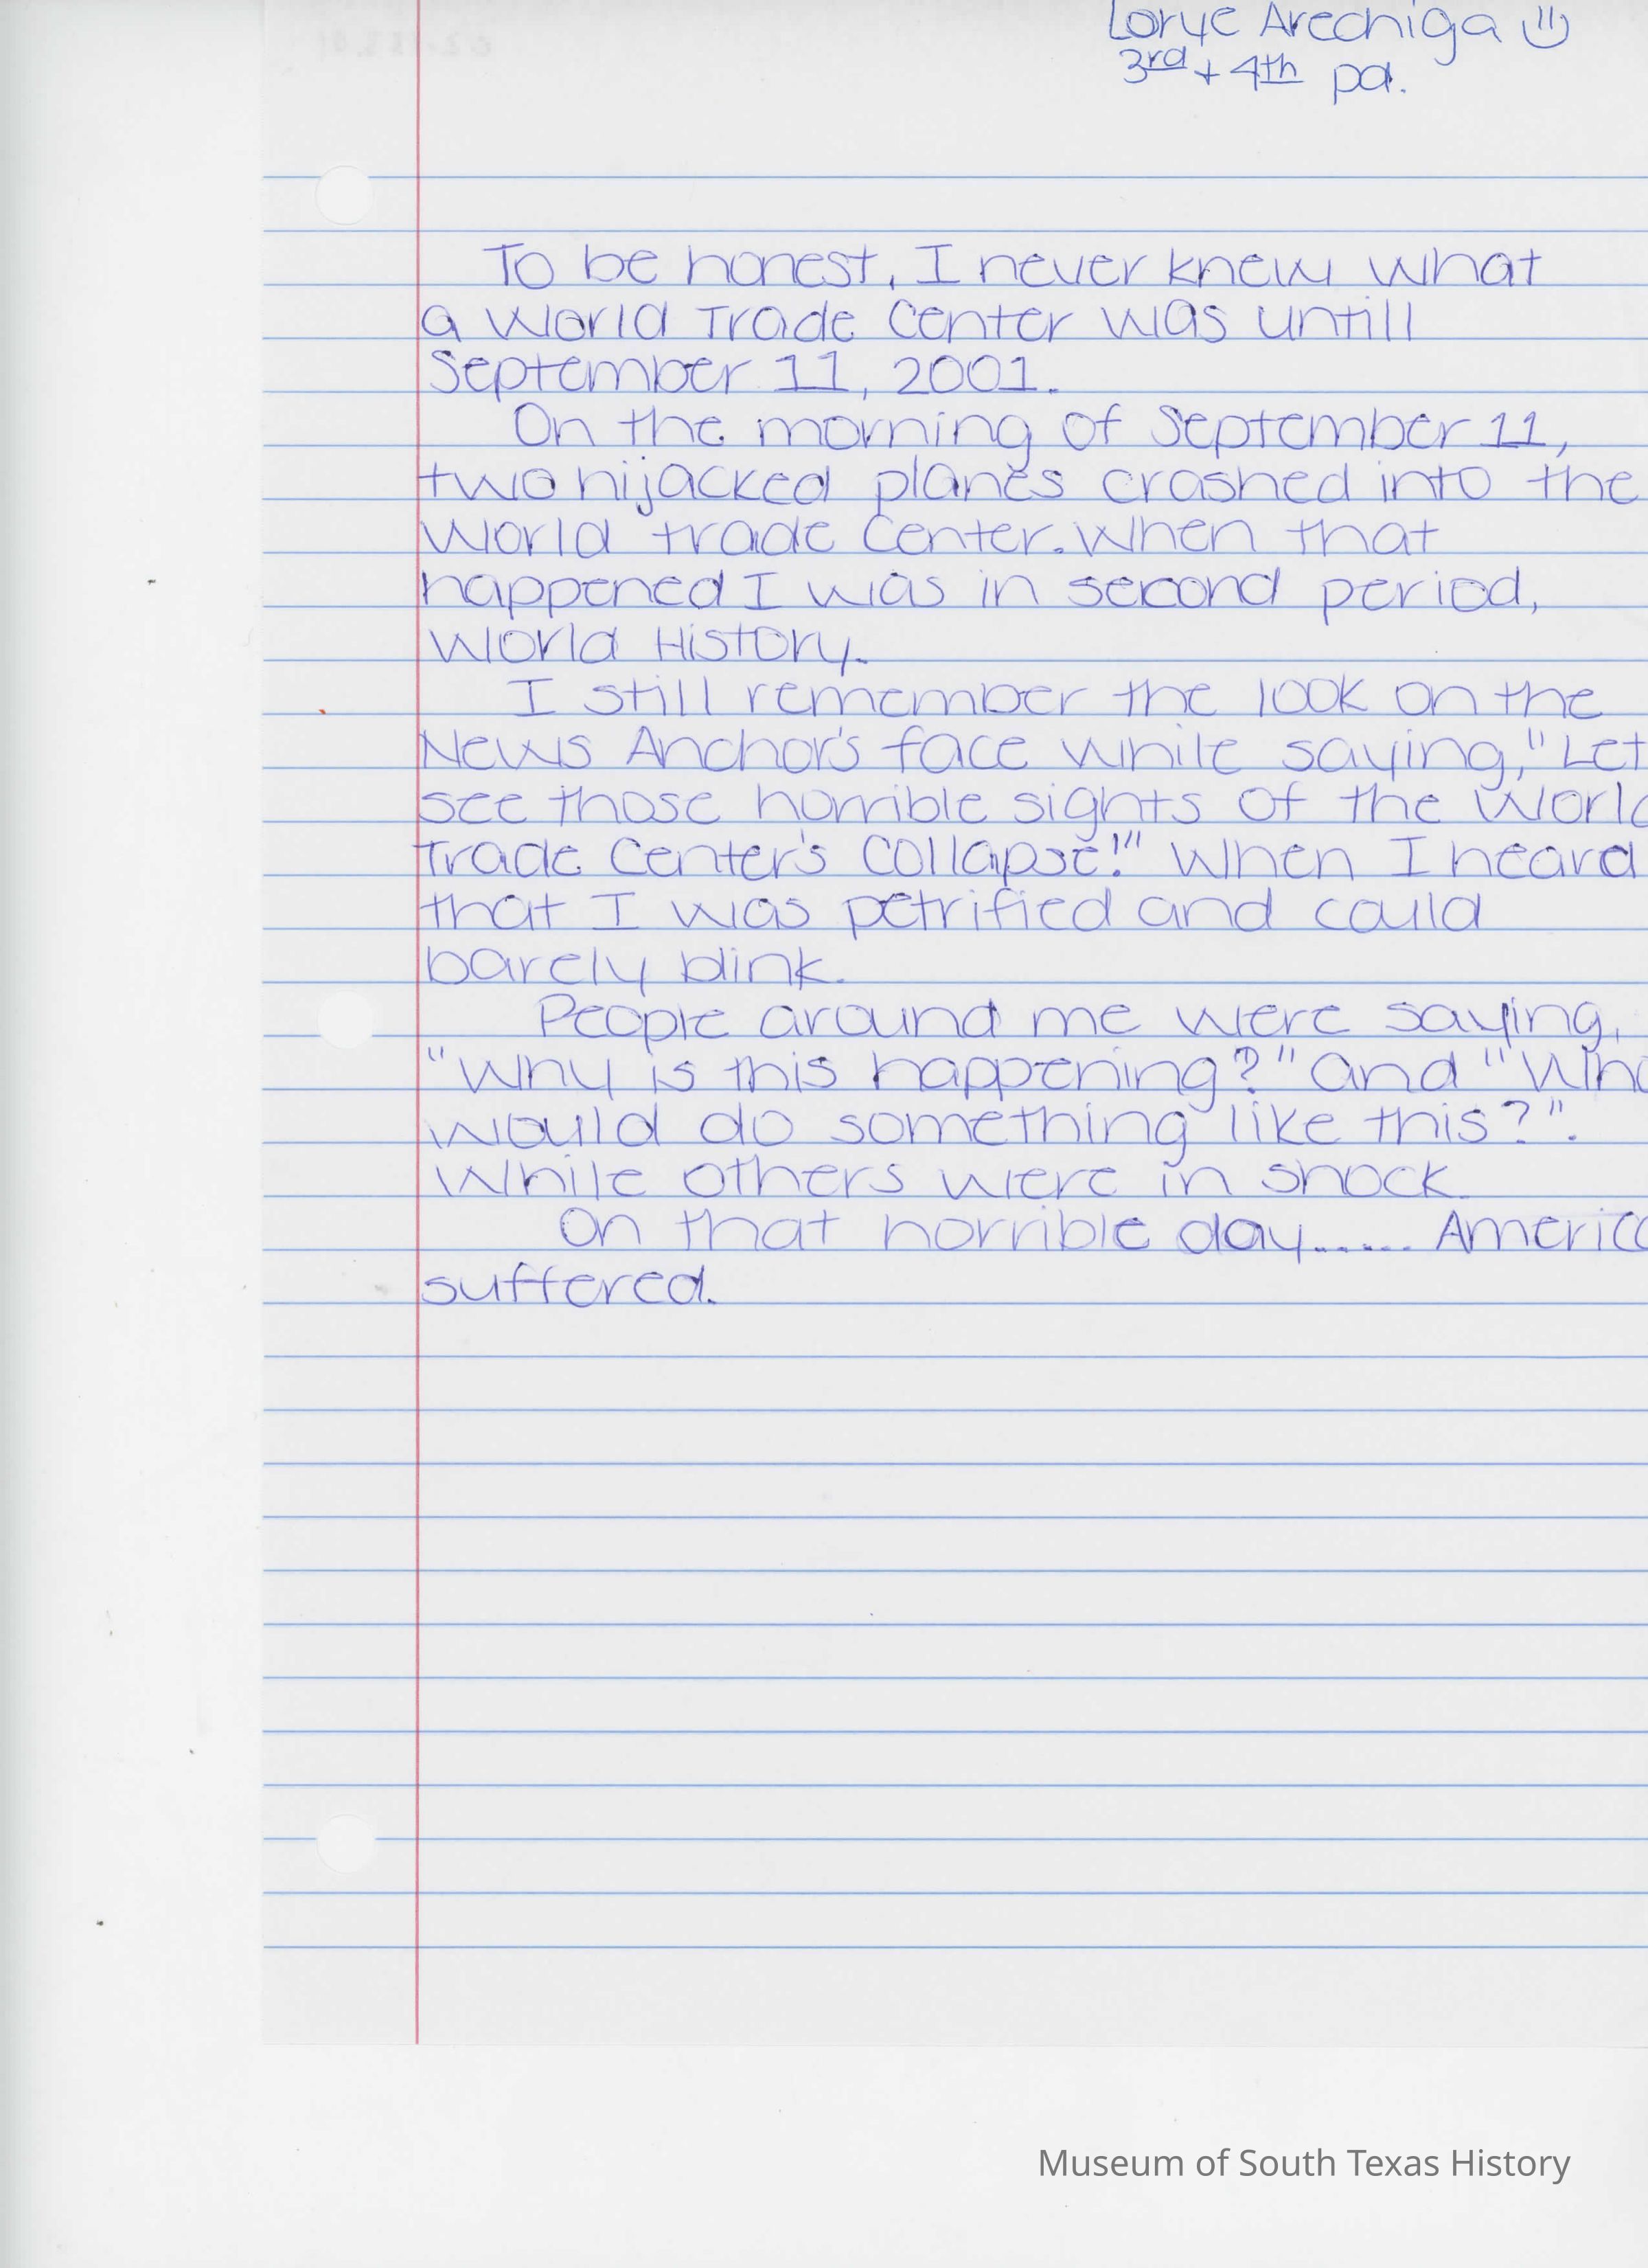 Lorye Arechiga
3rd + 4th pd.
To be honest, I never knew what
a World Trade Center was untill
September 11, 2001.
On the morning of September 11,
two hijacked planes crashed into the
World trade Center. When that
happened I was in second period,
World History.
I still remember the look on the
News Anchor's face while saying, "Let
see those horrible sights of the Worl
Trade Center's Collapse!" When I heard
that I was petrified and could
barely blink.
People around me were saying,
"Why is this happening?" and "Who
would do something like this?".
While others were in shock.
On that horrible day...... America
suffered.
Museum of South Texas History